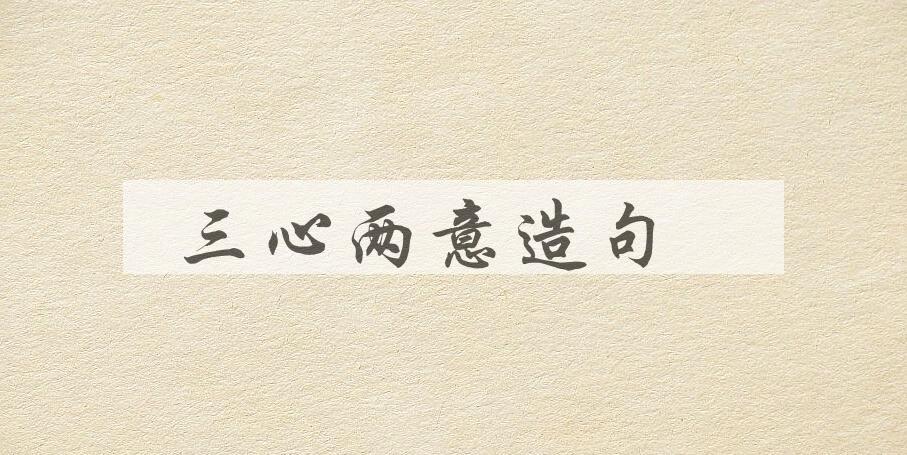 三心两意造句